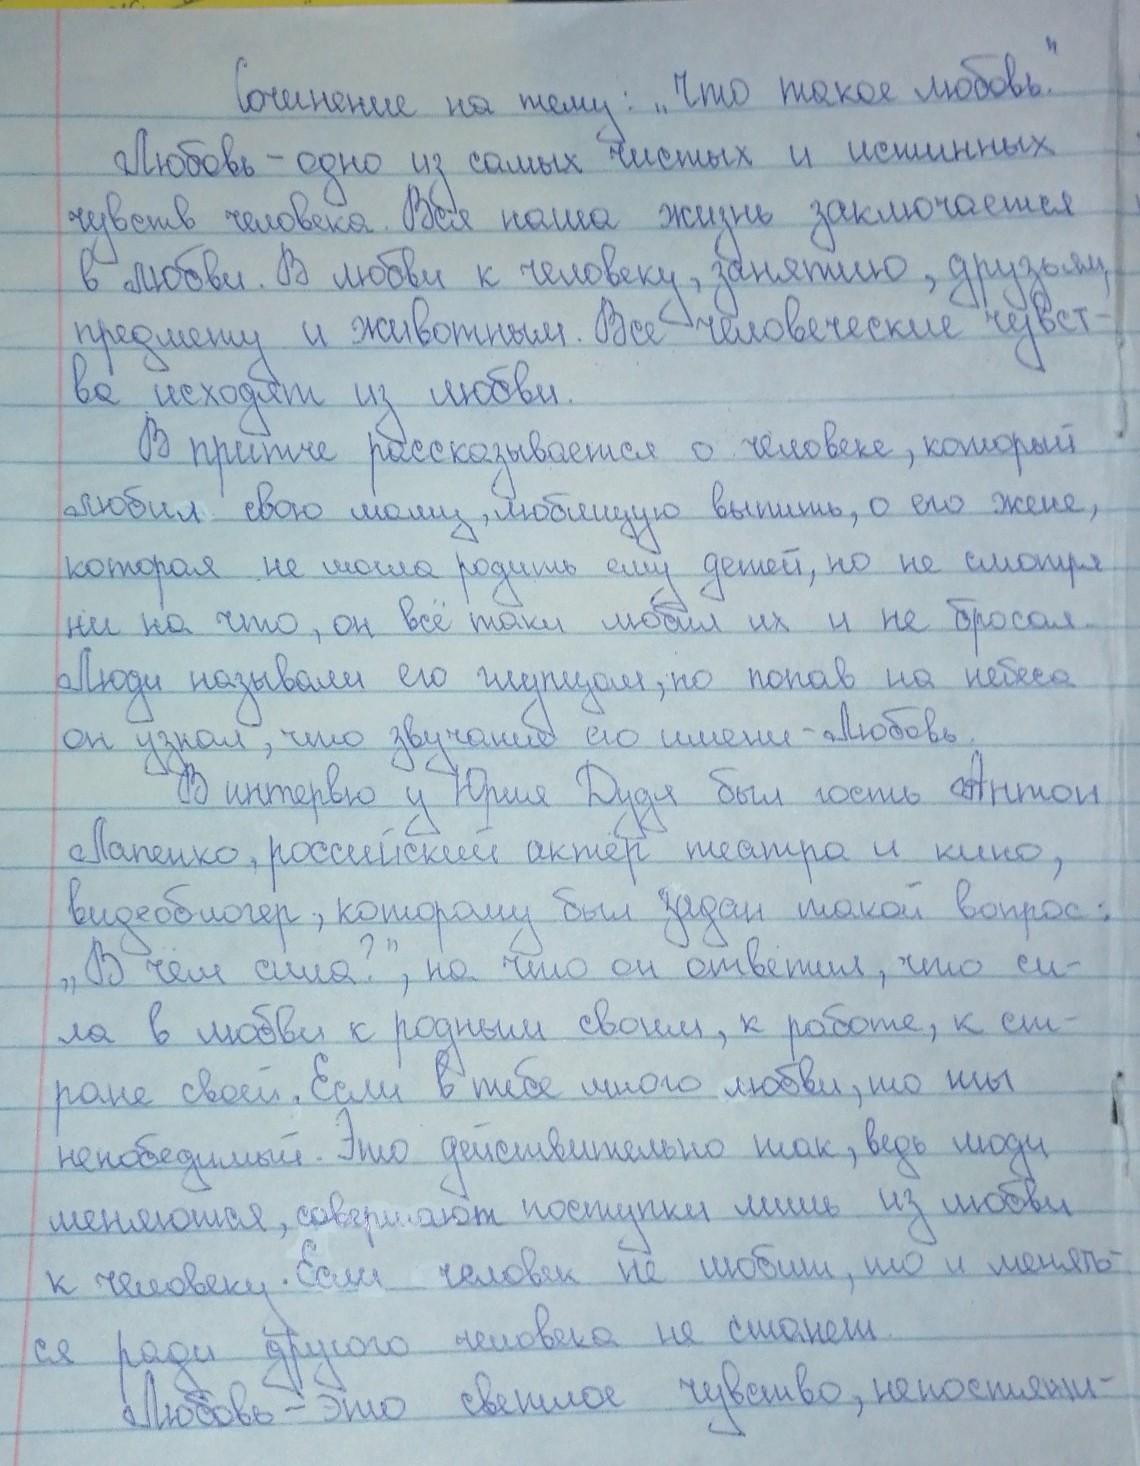 Сочинение на тему: „Что такое любовь."
Любовь - одно из самых чистых и истинных
чувств человека. Вся наша жизнь заключается
в любви. В любви к человеку, занятию, друзьям,
предмету и животным. Все человеческие чувст-
ва исходят из любви.
В притче рассказывается о человеке, который
любил свою маму, любящую выпить, о его жене,
которая не могла родить ему детей, но не смотря
ни на что, он всё таки любил их и не бросал.
Люди называли его глупцом, но попав на небеса
он узнал, что звучание его имени - Любовь.
В интервью у Юрия Дудя был гость Антон
Лапенко, российский актёр театра и кино,
видеоблогер, которому был задан такой вопрос:
„В чём сила?", на что он ответил, что си-
ла в любви к родным своим, к работе, к ст-
ране своей. Если в тебе много любви, то ты
непобедимый. Это действительно так, ведь люди
меняются, совершают поступки лишь из любви
к человеку. Если человек не любит, то и менять-
ся ради другого человека не станет.
Любовь - это светлое чувство, непостижи-